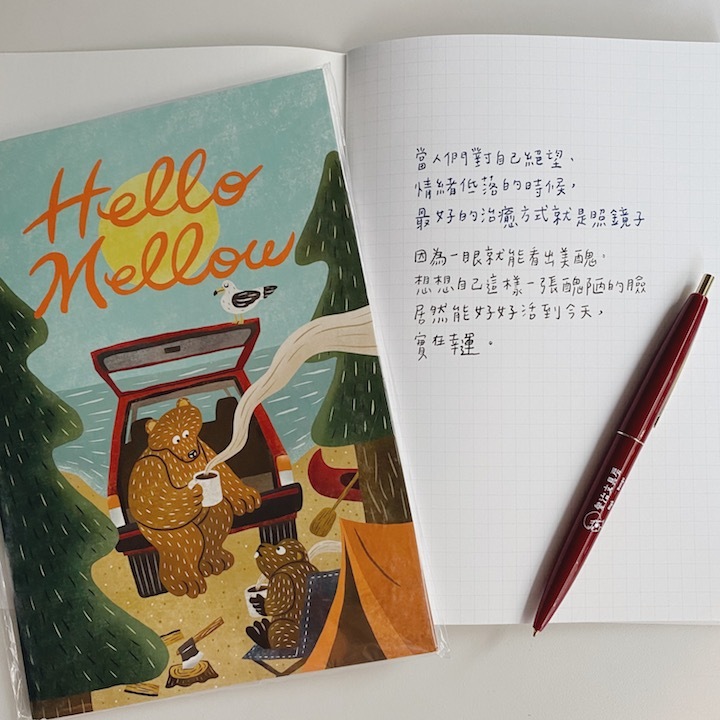 Hello
Mellow
當人們對自己絕望、
情緒低落的時候，
最好的治癒方式就是照鏡子
因為一眼就能看出美醜。
想想自己這樣一張醜陋的臉
居然能好好活到今天，
實在幸運。
文具房